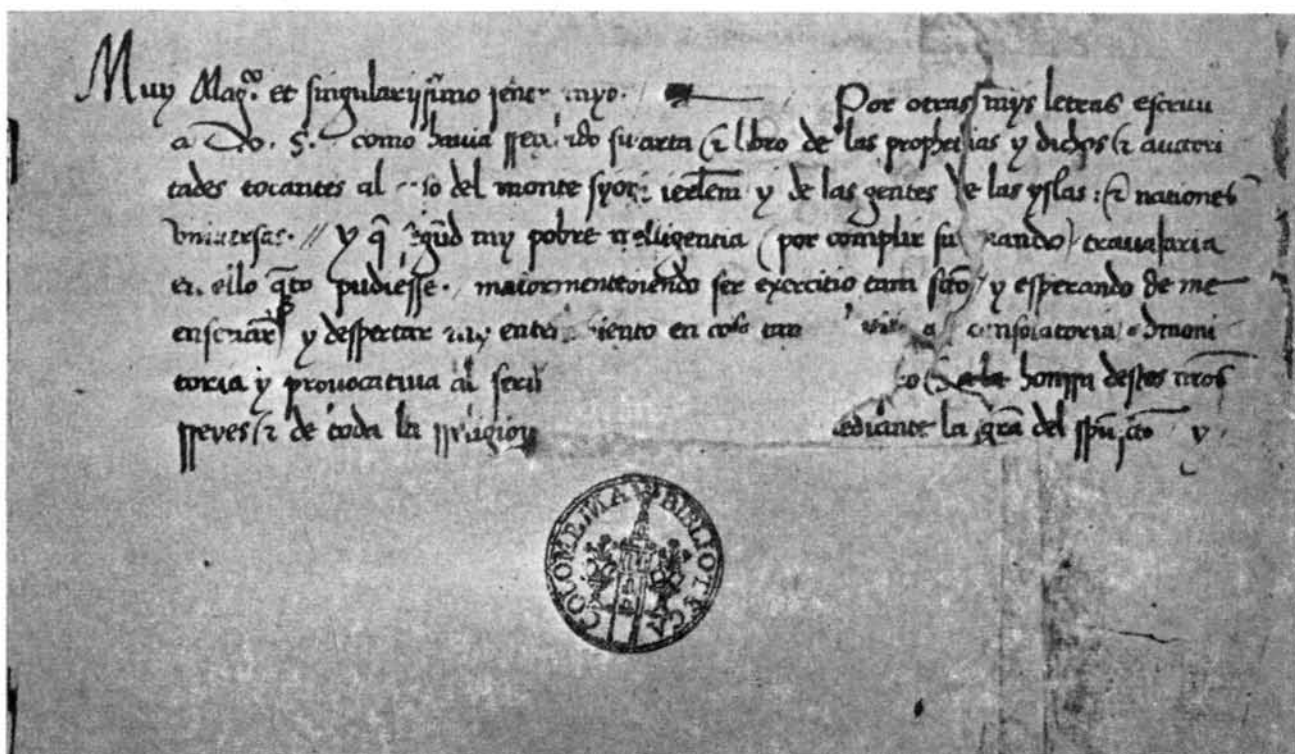 Muy Mag.co et singularissimo señor myo. Por otras mys letras escrivi
a Vo. S. como havia recibido su carta (et libro de las prophetias y dichos (et auctori
tades tocantes al del monte syon iexlem y de las gentes de las yslas: (et nationes
vniversas. // y q̄ segūd my pobre intelligencia (por complir su mando) travajaria
en ello q̄to pudiesse. maiormente viendo ser exercitio tam scto y esperando de me
enseñar y despertar my entendimiento en cosa tan consolatoria admoni
toria y provocativa al servi (et a la honrra destos nros
rreyes (et de toda la rreligion ediante la gra del spū scto y
COLOMBINA BIBLIOTECA